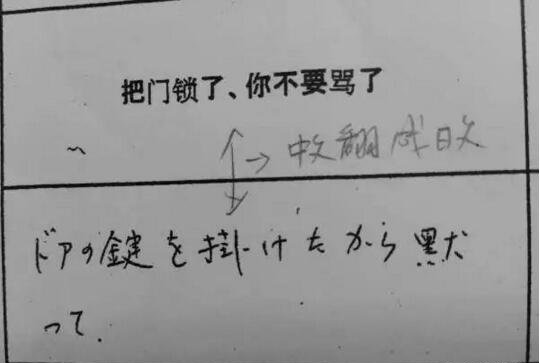 把门锁了、你不要骂了
~
→中文翻成日文
ドアの鍵を掛けたから黙
って.